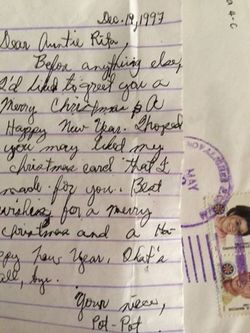 Dec. 19, 1997
Dear Auntie Rita,
Before anything else,
I'd like to greet you a
Merry Christmas & A
Happy New Year. I hoped
you may liked my
christmas card that I
made for you. Best
wishing for a merry
christmas and a Ha-
ppy New Year. That's
all, bye.
Your niece,
Pot-Pot
MAY